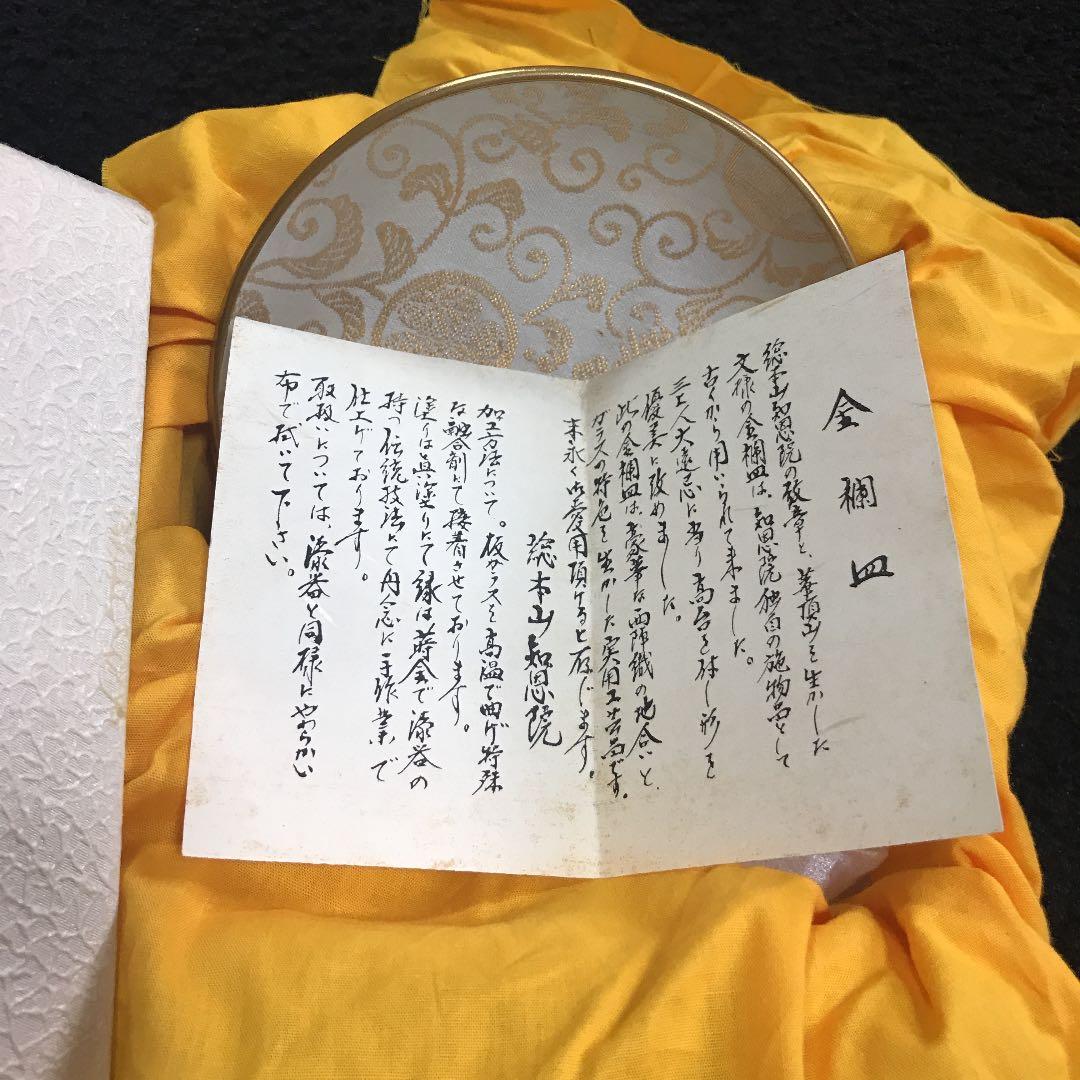 金襴皿
総本山知恩院の紋章と、華頂山を生かした
文様の金襴皿は、知恩院独自の施物品として
古くから用いられて来ました。
大遠忌に当り高台を附し形を
優美に改めました。
此の金襴皿は、豪華な西陣織の地合いと、
ガラスの特色を生かした実用工芸品です。
末永く御愛用頂けると存じます。
総本山知恩院
加工方法について。板ガラスを高温で曲げ特殊
な融合剤にて接着させております。
塗りは真塗りにて縁は蒔金で漆器の
持つ伝統技法にて丹念に手作業で
仕上げております。
取扱いについては、漆器と同様にやわらかい
布で拭いて下さい。